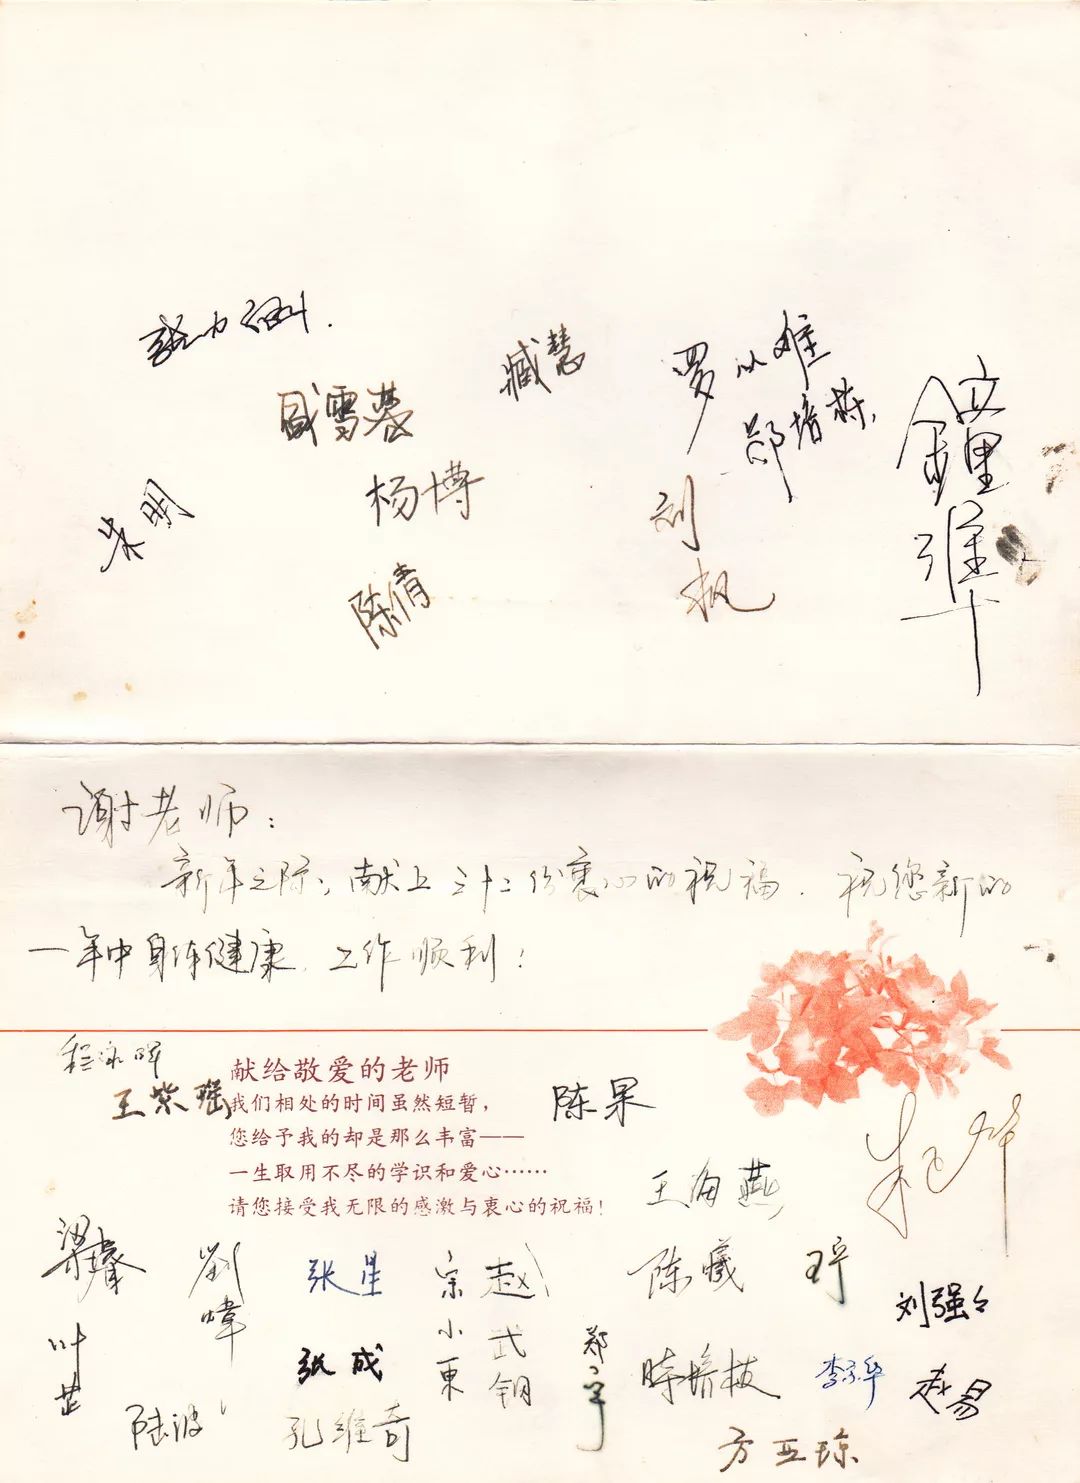 臧慧
罗以难
郑培栋
戚雪蓉
杨博
朱明
刘枫
陈倩
谢老师：
新年之际，献上三十二份衷心的祝福．祝您新的
一年中身体健康．工作顺利！
献给敬爱的老师
王紫瑶
我们相处的时间虽然短暂，
陈杲
您给予我的却是那么丰富——
一生取用不尽的学识和爱心……
王海燕
请您接受我无限的感激与衷心的祝福！
劉暐
张星
宗小东
赵武钢
陈曦
王宁
刘强々
叶芷
张成
郑宇
李宗华
赵易
陆波
孔维奇
方亚琼